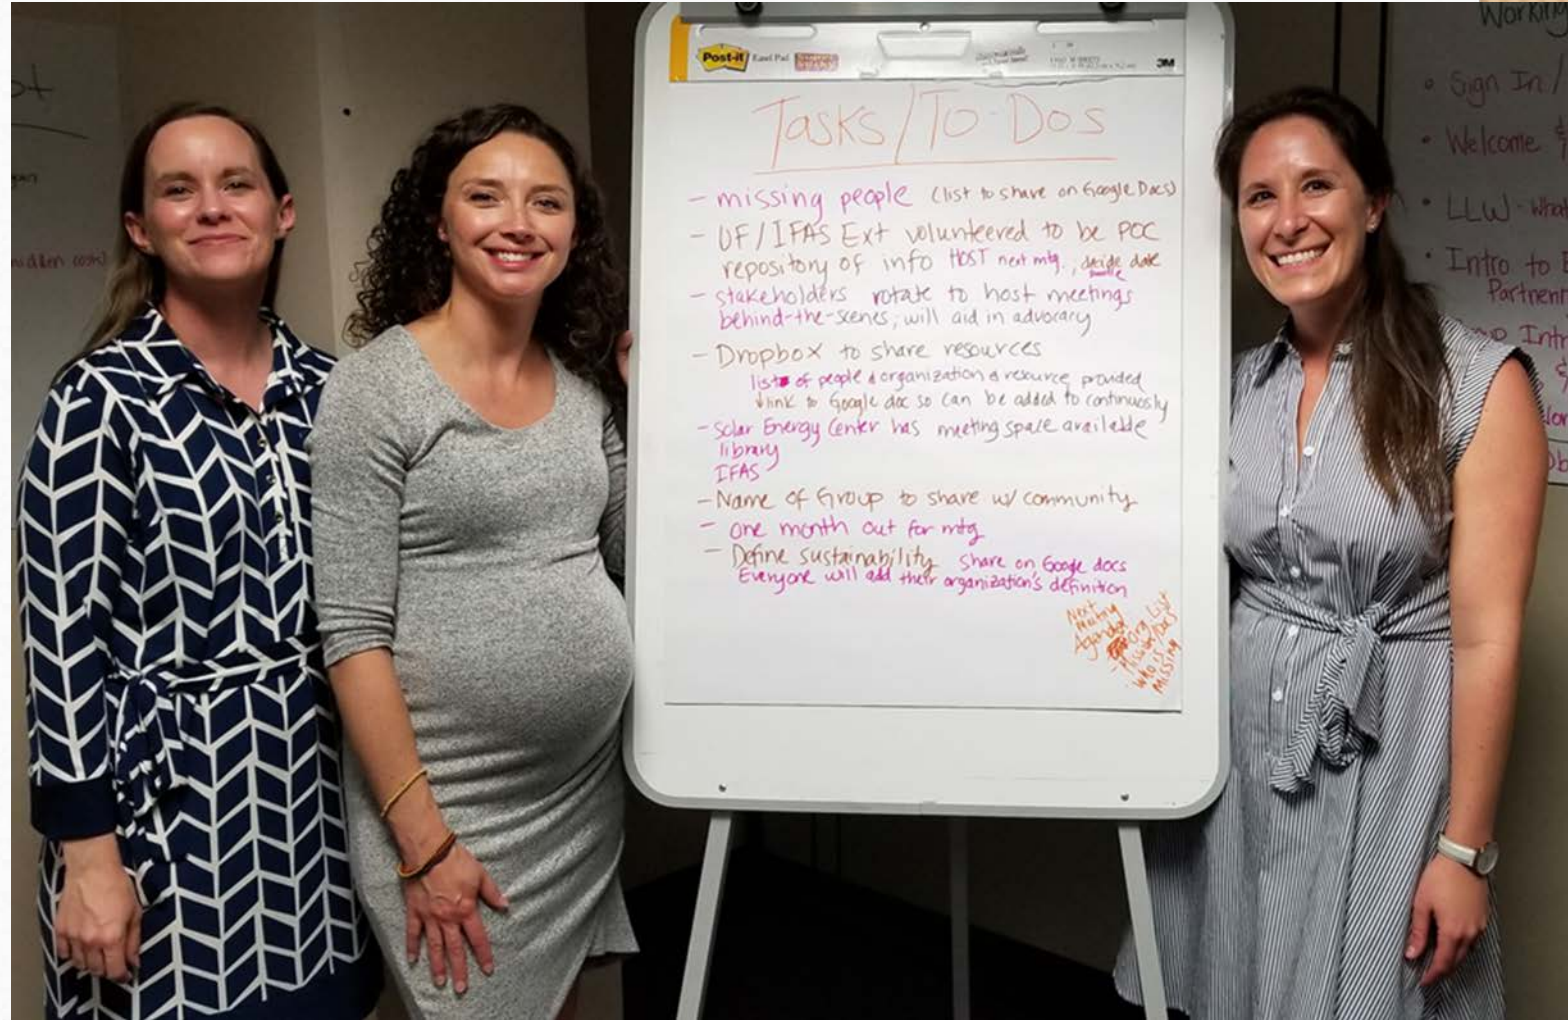 Post-it
Easel Pad
3M
Tasks/To-Dos
- missing people (list to share on Google Docs)
- UF/IFAS Ext volunteered to be POC
repository of info HOST next mtg, decide date
- stakeholders rotate to host meetings
behind-the-scenes, will aid in advocacy
- Dropbox to share resources
list of people & organization & resource provided
link to Google doc so can be added to continuously
- Solar Energy Center has meeting space available
library
IFAS
- Name of Group to share w/ community
- one month out for mtg
- Define sustainability share on Google docs
Everyone will add their organization's definition
Next
Meeting
Agenda
Org List
Who is
Missing
hidden costs)
Working
• Sign In /
• Welcome
• LLW - What
• Intro to
Partner
Intr